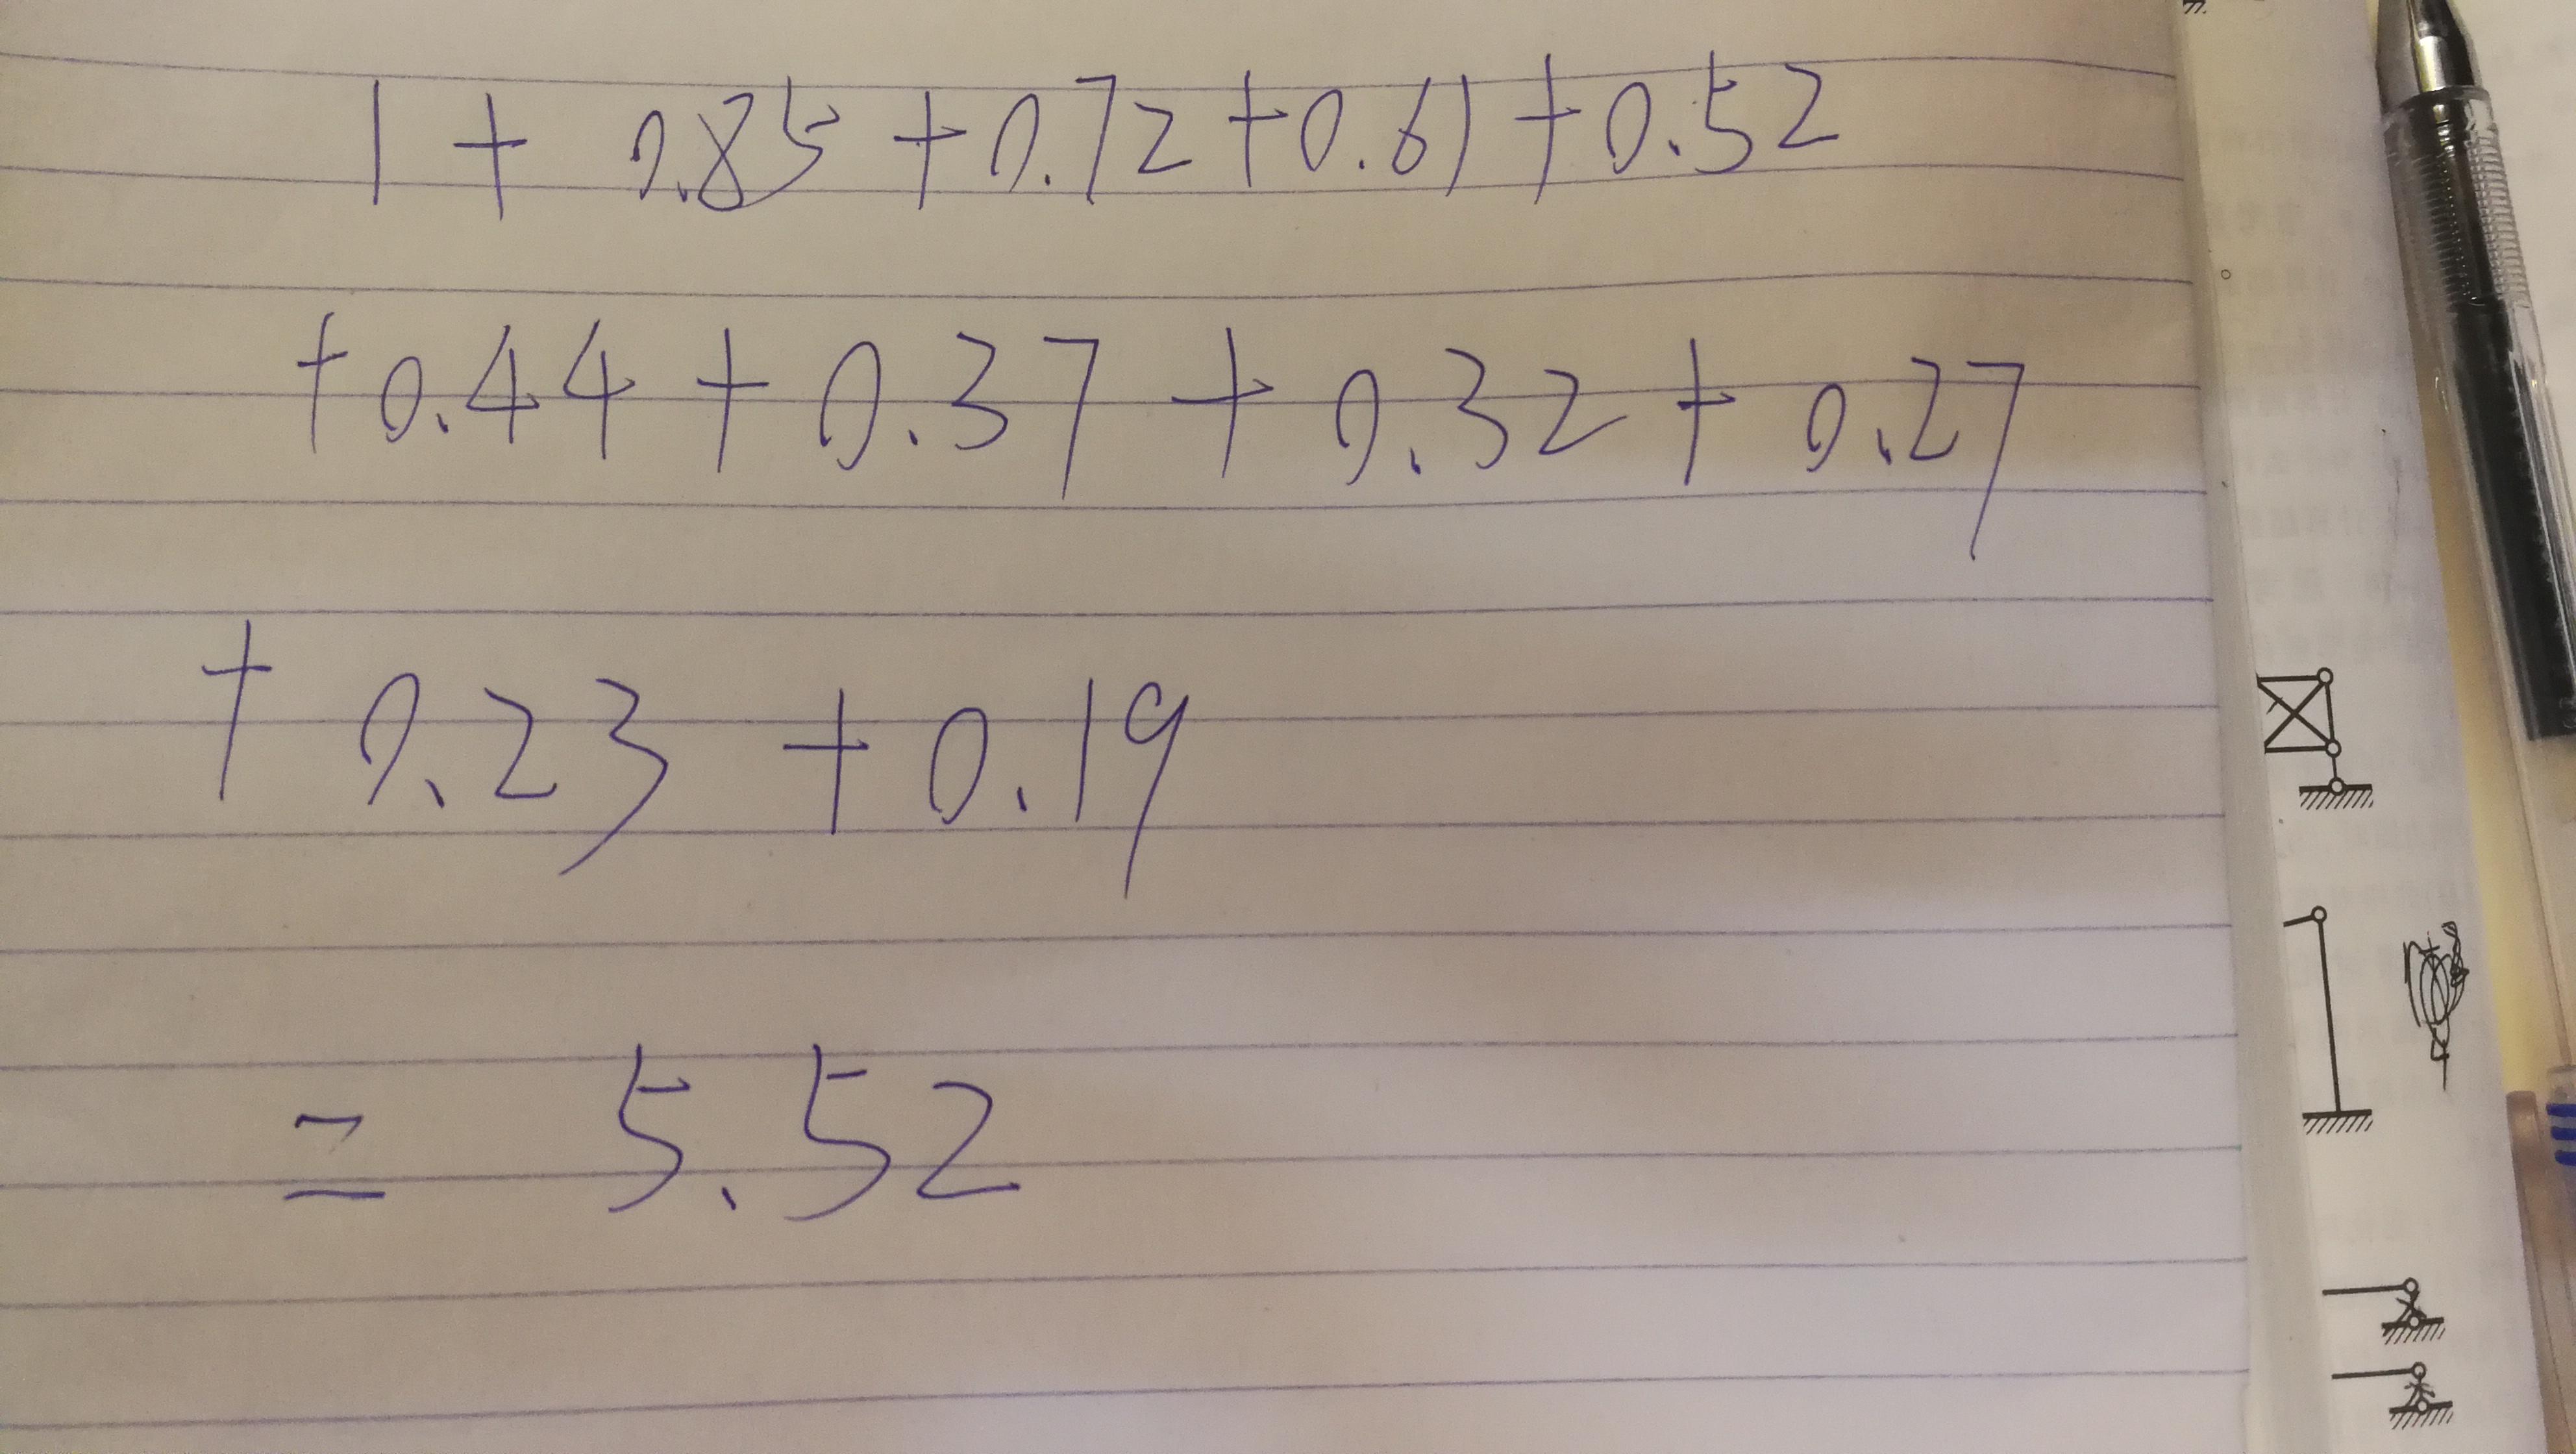 1 + 0.85 + 0.72 + 0.61 + 0.52
+ 0.44 + 0.37 + 0.32 + 0.27
+ 0.23 + 0.19
= 5.52